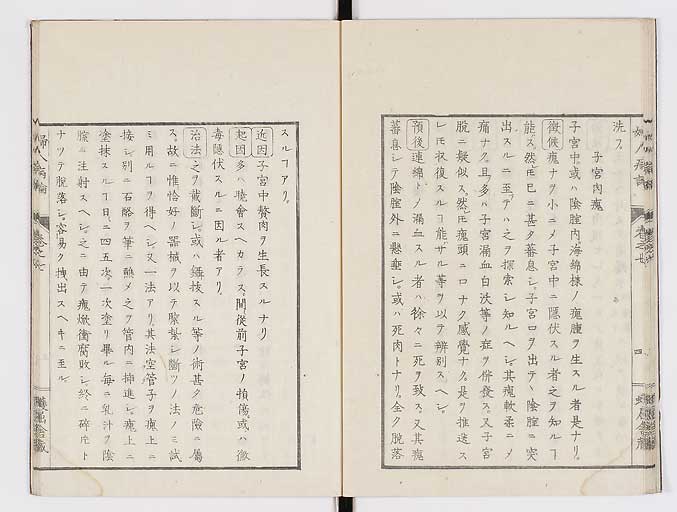 洗フ
子宮内瘣
子宮中或ハ陰腔内海綿様ノ瘣腫ヲ生スル者是ナリ。
徴候瘣ナヲ小ニメ子宮中ニ隠伏スル者之ヲ知ルヿ
能ス。然𪜈已ニ甚ク蕃息シ。子宮口ヲ出テヽ陰腔ニ突
出スルニ至テハ之ヲ探索シ知ルヘシ其瘣軟柔ニメ
痛ナク。且多ハ子宮漏血白沃等ノ症ヲ併發ス。又子宮
脱ニ疑似ス。然𪜈瘣頭ニロナク感覺ナク。是ヲ推送ス
レ𪜈収復スルヿ能ザル等ヲ以テ辨別スヘシ
預後連綿トノ漏血スル者ハ徐々ニ死ヲ致ス。又其瘣
蕃息シテ陰腔外ニ懸垂シ。或ハ死肉トナリ。全ク脱落
婦人病論
卷之七
四
スルヿアリ。
近因子宮中贅肉ヲ生長スルナリ
起因多ハ曉會スヘカラス。間從前子宮ノ損傷。或ハ黴
毒隠伏スルニ因ル者アリ。
治法之ヲ截斷シ。或ハ鍾拔スル等ノ術甚ク危險ニ屬
ス。故ニ惟恰好ノ器械ヲ以テ緊紮シ斷ツノ法ノミ試
ミ用ルヿヲ得ヘシ又一法アリ。其法空管子ヲ瘣上ニ
接シ別ニ石酪ヲ筆ニ蘸メ之ヲ管内ニ挿進シ瘣上ニ
塗抹スルヿ日ニ四五次。一次塗リ畢ル毎ニ乳汁ヲ陰
腔ニ注射スヘシ。之ニ由テ瘣焮衝腐敗シ。終ニ碎片ト
ナツテ脱落シ。容易ク拽出スヘキニ至ル
婦人病論
卷之七